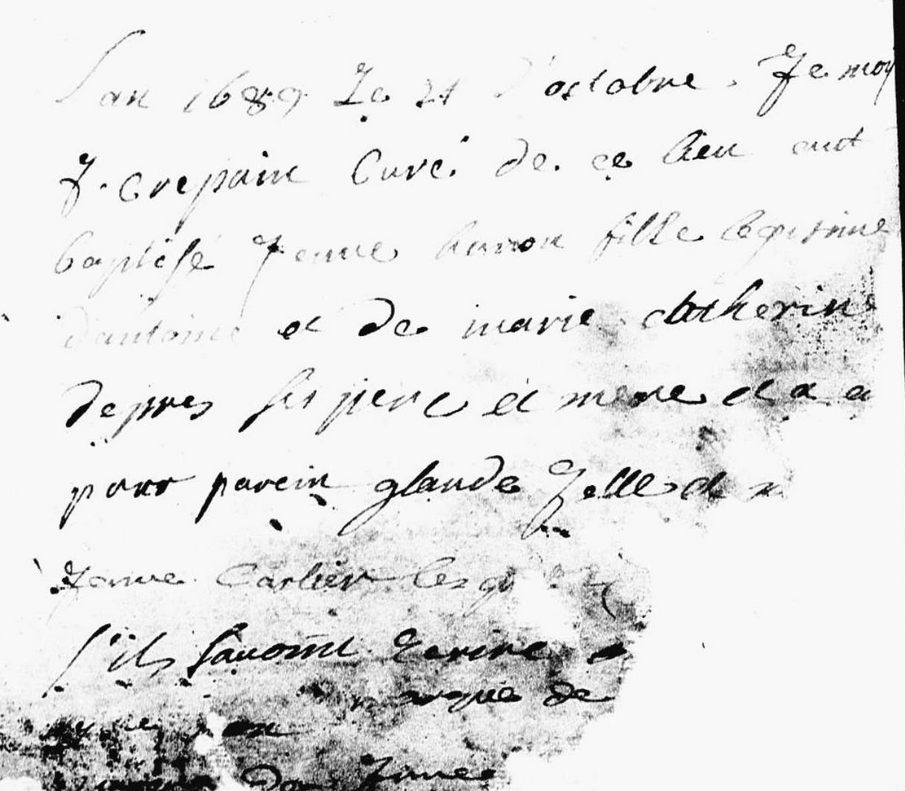 L'an 1689 Le 21 d'octobre. Je moy
J. Crepain Curé de ce lieu aut
baptisé Jenne huron fille legitime
d'antoine et de marie Catherine
depres ses pere et mere et a e
pour parein glaude Jelle et
Jenne Carlier lesq
s'ils savoint Ecrire
marque de
de Jenne